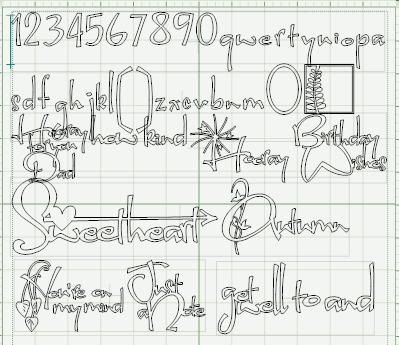 1234567890 qwertyuiopa
sdfghjkl zxcvbnm
Hooray how kind
Hooray
Birthday
Wishes
Dad
Sweetheart
Autumn
You're on
my mind
Just
a Note
get well to and